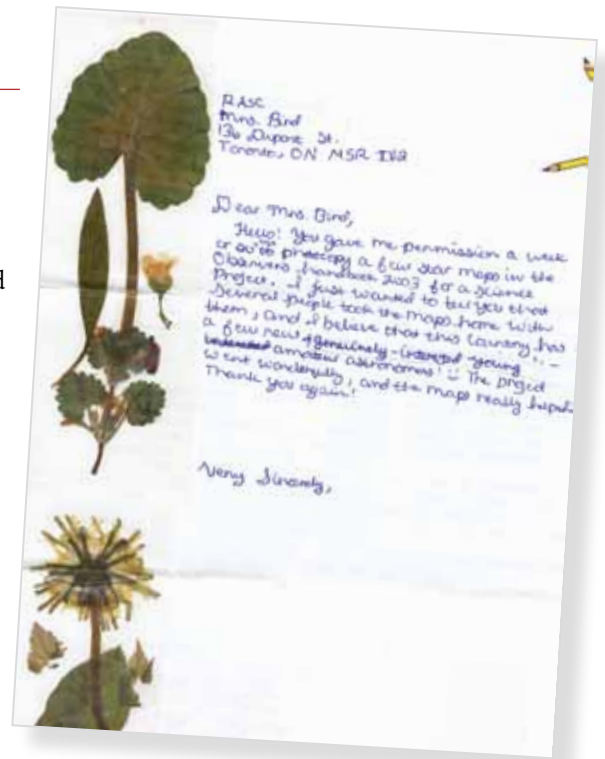 d
RASC
Mrs. Bird
136 Dupont St.
Toronto, ON M5R 1V2
Dear Mrs. Bird,
Hello! You gave me permission a week
or so ago to photocopy a few star maps in the
Observers handbook 2003 for a science
Project. I just wanted to tell you that
Several people took the maps home with
them, and I believe that this country has
a few new genuinely-interested young
amateur astronomers! The project
went wonderfully, and the maps really helped.
Thank you again!
Very Sincerely,